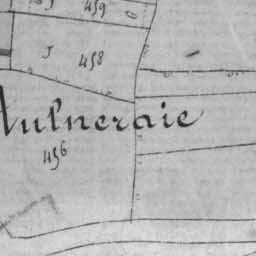 459
J
458
Aulneraie
456